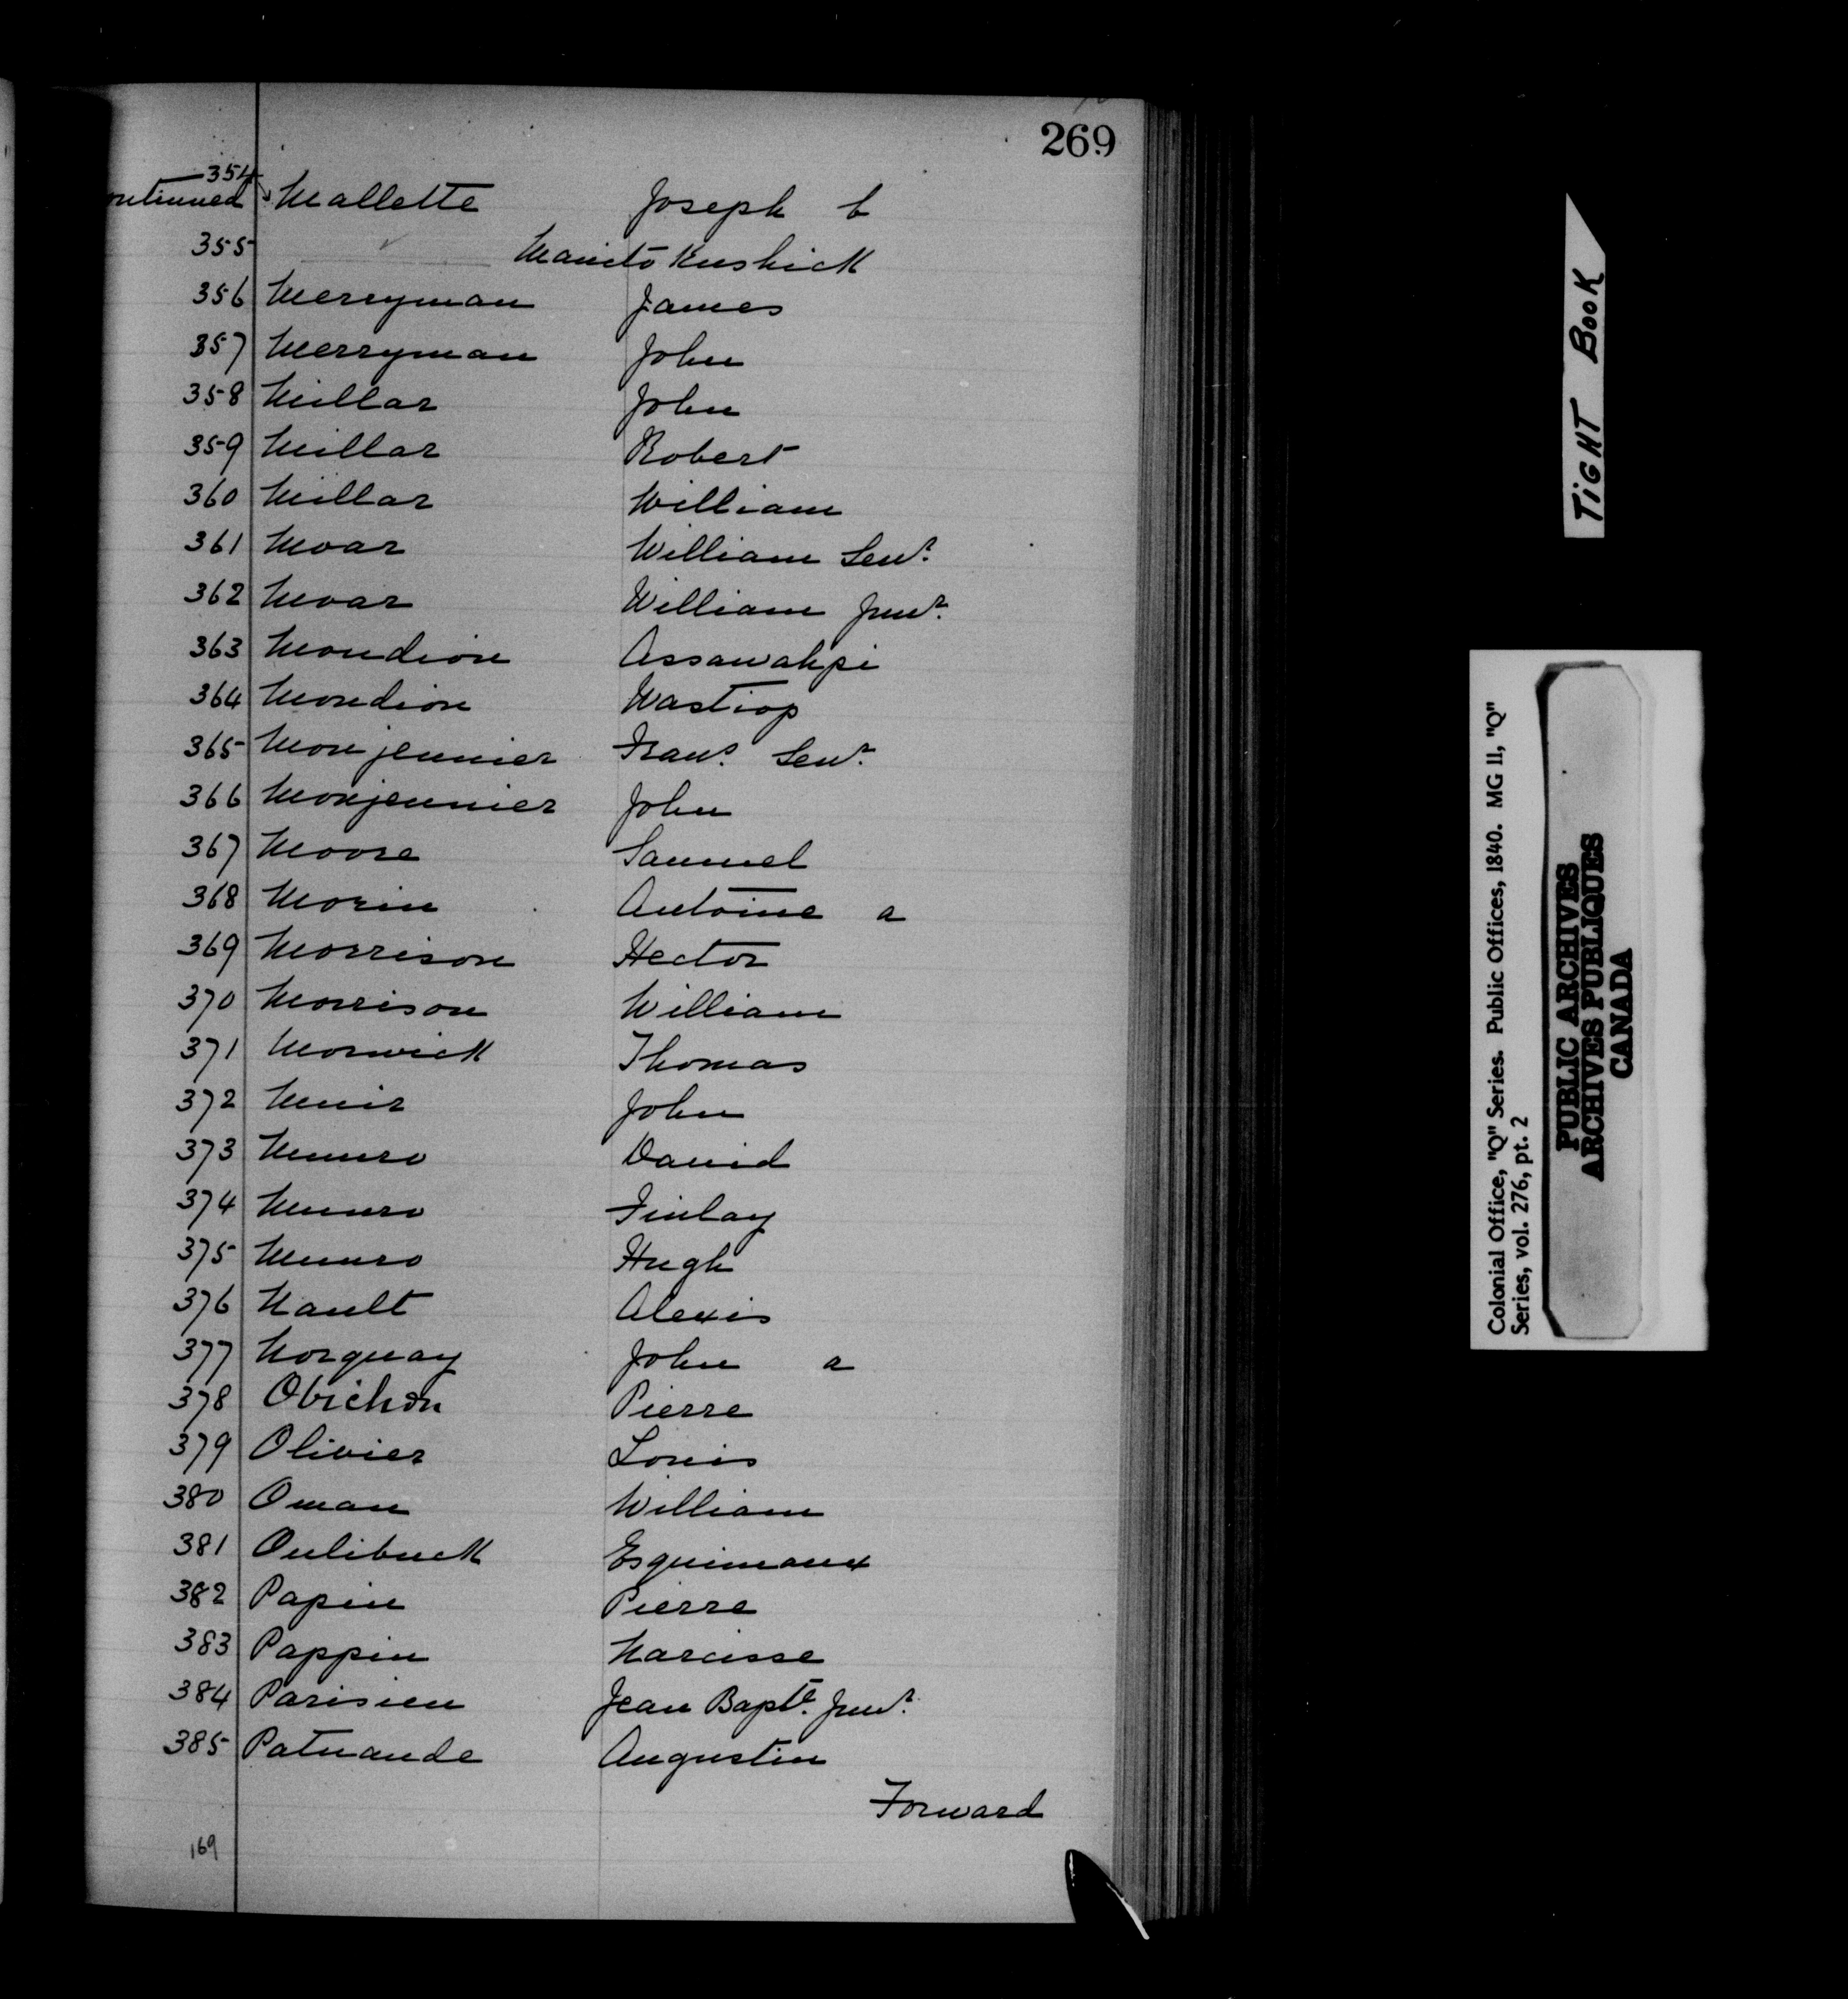 269
354
ontinued Mallette Joseph b
355 Manito Kushick
356 Merryman James
357 Merryman John
358 Millar John
359 Millar Robert
360 Millar William
361 Moar William Senr.
362 Moar William Junr.
363 Mondion Assawahpi
364 Mondion Wastiop
365 Monjeunier Frans. Senr.
366 Monjeunier John
367 Moore Samuel
368 Morin Antoine a
369 Morrison Hector
370 Morrison William
371 Morwick Thomas
372 Muir John
373 Munro David
374 Munro Finlay
375 Munro Hugh
376 Nault Alexis
377 Norquay John a
378 Obichon Pierre
379 Olivier Louis
380 Oman William
381 Oulibuck Esquimaux
382 Papin Pierre
383 Pappin Narcisse
384 Parisien Jean Bapte. Junr.
385 Patnaude Augustin
Forward
169
TIGHT BOOK
Colonial Office, "Q" Series. Public Offices, 1840. MG 11, "Q"
Series, vol. 276, pt. 2
PUBLIC ARCHIVES
ARCHIVES PUBLIQUES
CANADA